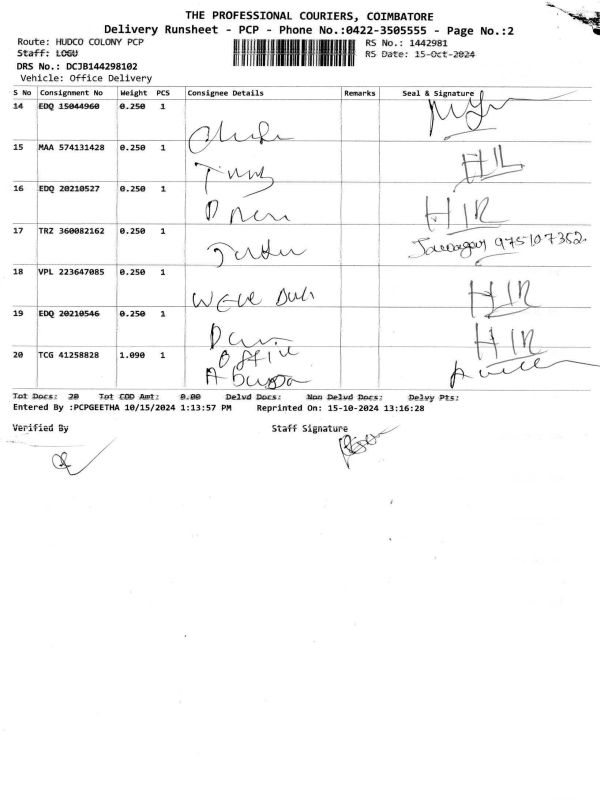 THE PROFESSIONAL COURIERS, COIMBATORE
Delivery Runsheet - PCP - Phone No.:0422-3505555 - Page No.:2
Route: HUDCO COLONY PCP
RS No.: 1442981
Staff: LOGU
RS Date: 15-Oct-2024
DRS No.: DCJB144298102
Vehicle: Office Delivery
S No Consignment No Weight PCS Consignee Details Remarks Seal & Signature
14 EDQ 15044960 0.250 1
15 MAA 574131428 0.250 1
16 EDQ 20210527 0.250 1
17 TRZ 360082162 0.250 1 975107352
18 VPL 223647085 0.250 1
19 EDQ 20210546 0.250 1
20 TCG 41258828 1.090 1 Office
Tot Docs: 20 Tot COD Amt: 0.00 Delvd Docs: Non Delvd Docs: Delvy Pts:
Entered By :PCPGEETHA 10/15/2024 1:13:57 PM Reprinted On: 15-10-2024 13:16:28
Verified By Staff Signature